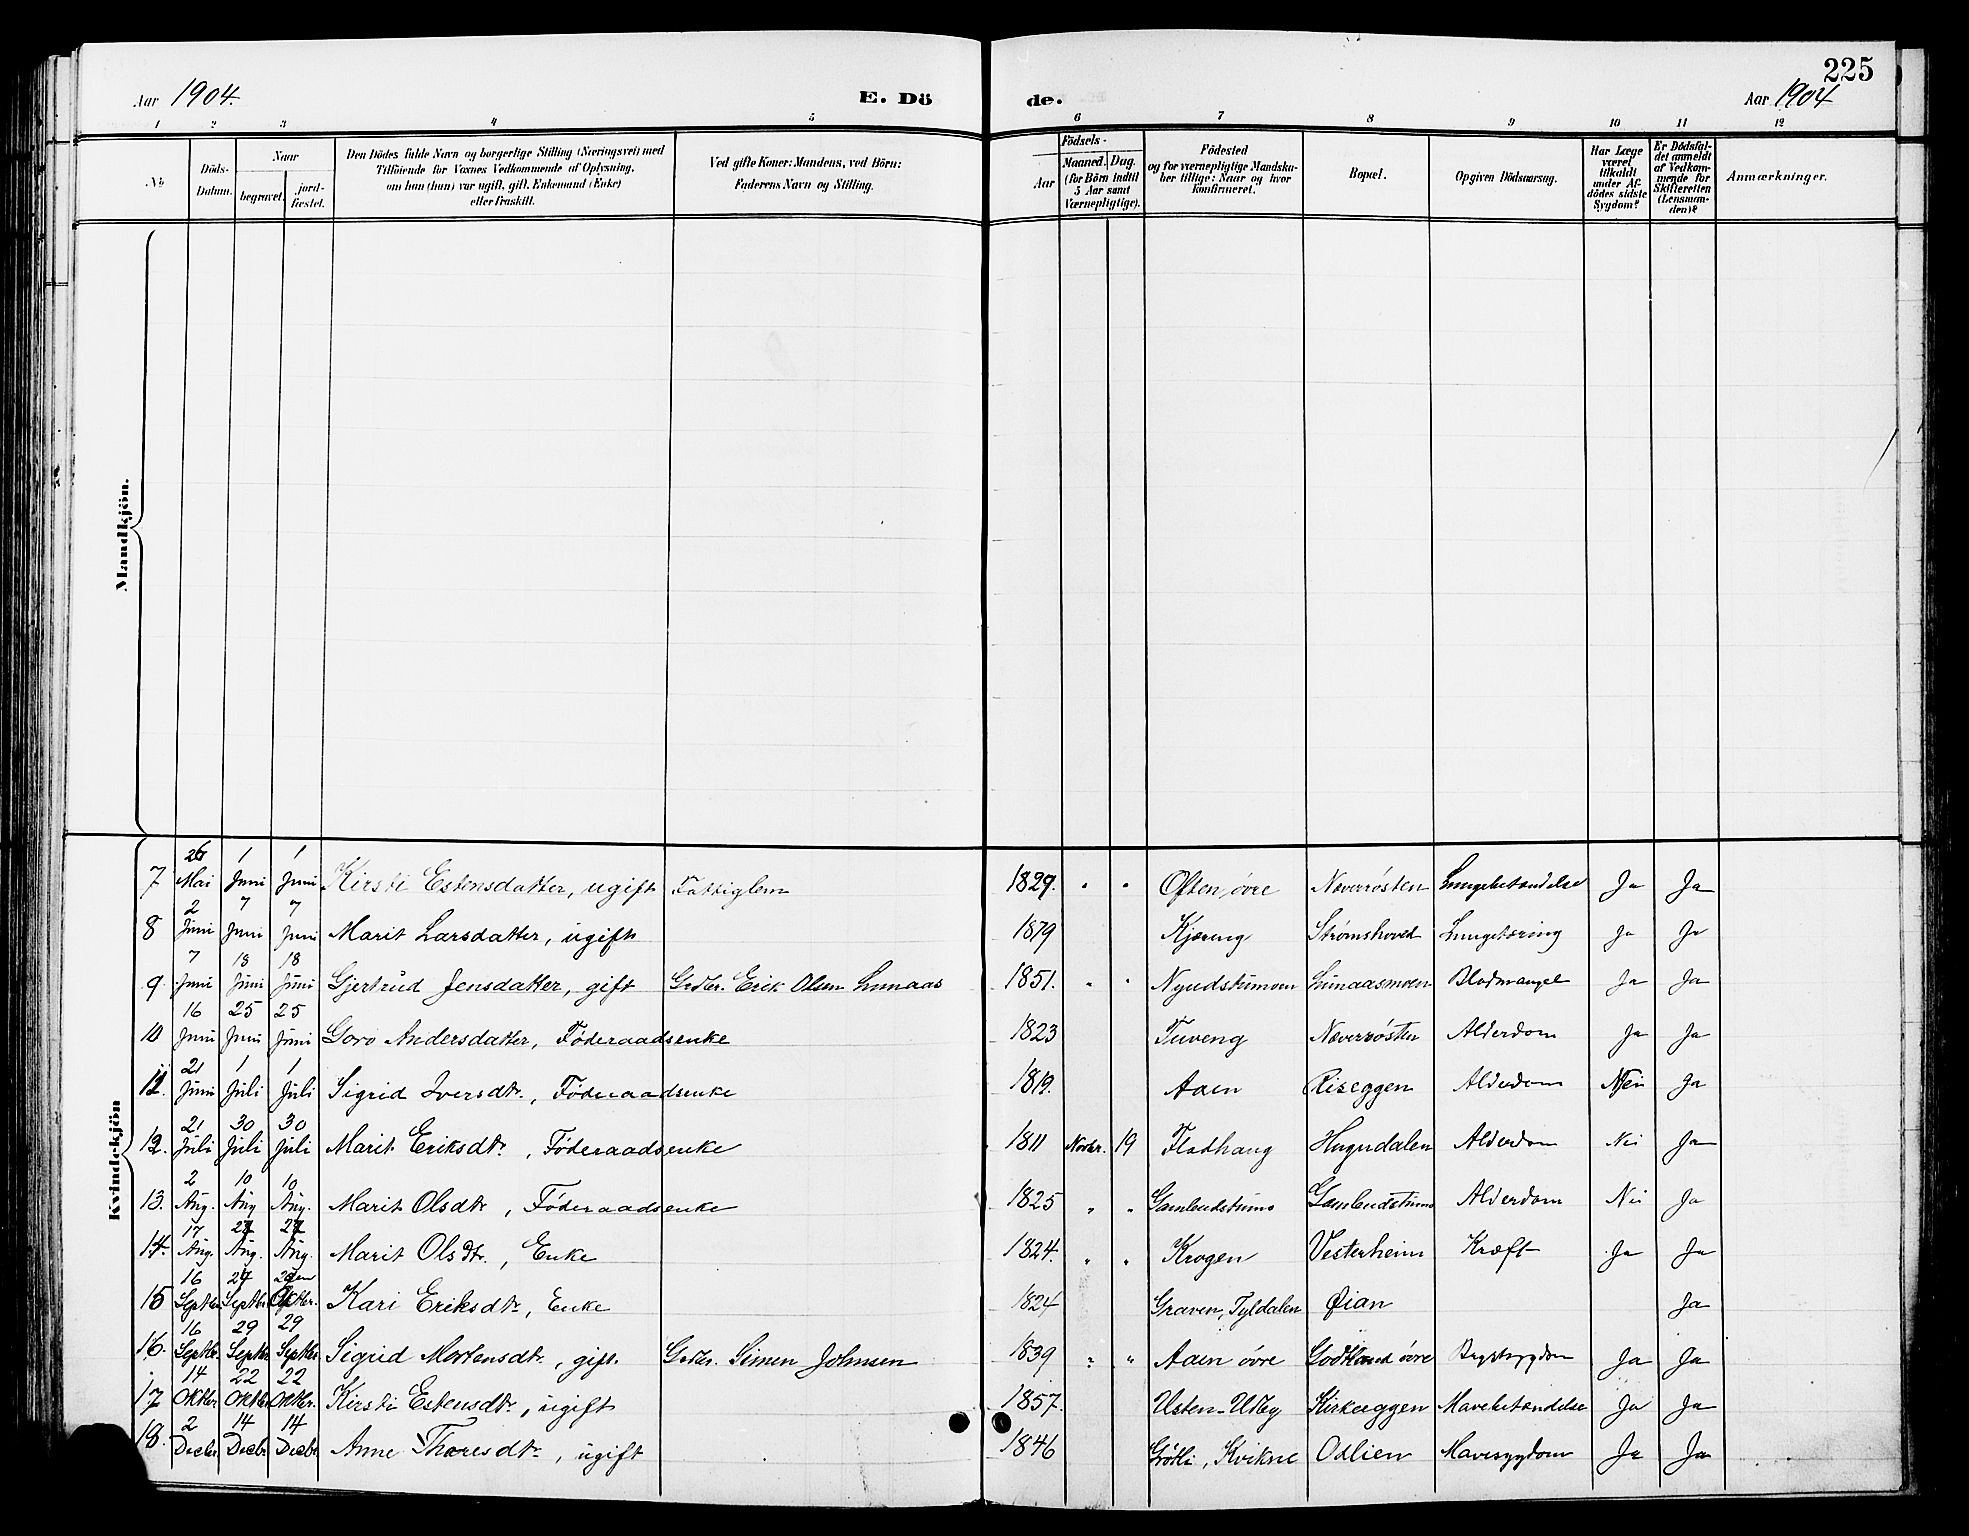 225
Aar 1904. E. Dö de. Aar 1904
1 2 3 4 5 6 7 8 9 10 11 12
No
Döds-Datum.
Naar
begravet.
jord-fæstet.
Den Dödes fulde Navn og borgerlige Stilling (Næringsvei) med
Tilföiende for Voxnes Vedkommende af Oplysning,
om han (hun) var ugift, gift, Enkemand (Enke)
eller fraskilt.
Ved gifte Koner: Mandens, ved Börn:
Faderens Navn og Stilling.
Födsels-
Aar
Maaned. Dag.
(for Börn indtil
5 Aar samt
Værnepligtige).
Födested
og for værnepligtige Mandska-
ber tillige: Naar og hvor
konfirmeret.
Bopæl.
Opgiven Dödsaarsag.
Har Læge
været
tilkaldt
under Af-
dödes sidste
Sygdom?
Er Dödsfal-
det anmeldt
af Vedkom-
mende for
Skifteretten
(Lensman-
den)?
Anmærkninger.
Mandkjön.
Kvindekjön
7 26 Mai 1 Juni 1 Juni Kirsti Estensdatter, ugift Fattiglem 1829. " " Østen øvre Neverrøsten Lungebetændelse Ja Ja
8 2 Juni 7 Juni 7 Juni Marit Larsdatter, ugift 1879 Kjæreng Strømshoved Lungetæring Ja Ja
9. 7 Juni 18 Juni 18 Juni Gjertrud Jensdatter, gift Grdbr. Erik Olsen Lunaas 1851. " " Nyudstumoen Lunaasmoen Blodmangel Ja Ja
10 16 Juni 25 Juni 25 Juni Goro Andersdatter, Føderaadsenke 1823 Tuveng Neverrøsten Alderdom Ja Ja
11. 21 Juni 1 Juli 1 Juli Sigrid Iversdtr., Føderaadsenke 1819. Aaen Riseggen Alderdom Nei Ja
12. 21 Juli 30 Juli 30 Juli Marit Eriksdtr., Føderaadsenke 1811 Novbr. 19 Fladhaug Hugudalen Alderdom Nei Ja
13. 2 Aug. 10 Aug 10 Aug. Marit Olsdtr, Føderaadsenke 1825 " " Gamleudstumo Gamleudstumo Alderdom Nei Ja
14. 17 Aug. 27 Aug. 27 Aug. Marit Olsdtr., Enke 1824. " " Krogen Vesterheim Kræft Ja Ja
15 16 Septbr. Septbr. Oktbr. Kari Eriksdtr, Enke 1824 Graven, Tyldalen Øian Ja
16. 16 Septbr. 29 Septbr 29 Septbr. Sigrid Mortensdtr., gift. Grdbr. Simen Johnsen 1839 " " Aaen øvre Godtland øvre Brystsygdom Ja Ja
17 14 Oktbr 22 Oktbr 22 Oktbr. Kirsti Estensdtr., ugift 1857. Usten-Udby Kirkeggen Mavebetændelse Ja Ja
18. 2 Decbr. 14 Decbr 14 Decbr Anne Tharesdtr., ugift 1846 Grøtli, Kvikne Odlien Mavesygdom Ja Ja